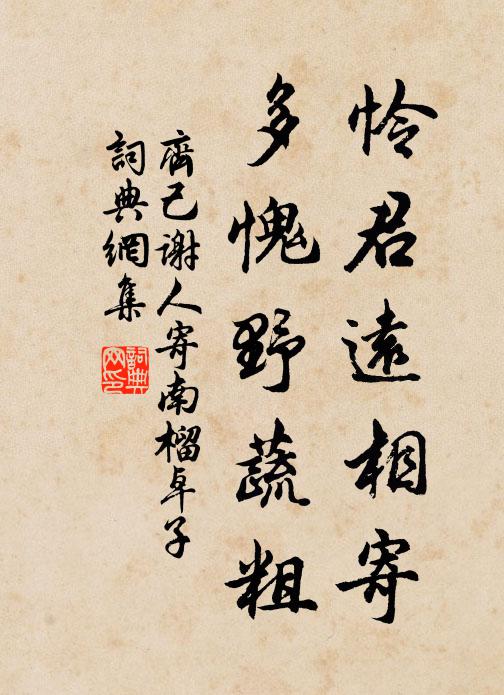 怜君遠相寄
多愧野蔬粗
齊己謝人寄南榴卓子
詞典網集
詞典
网印